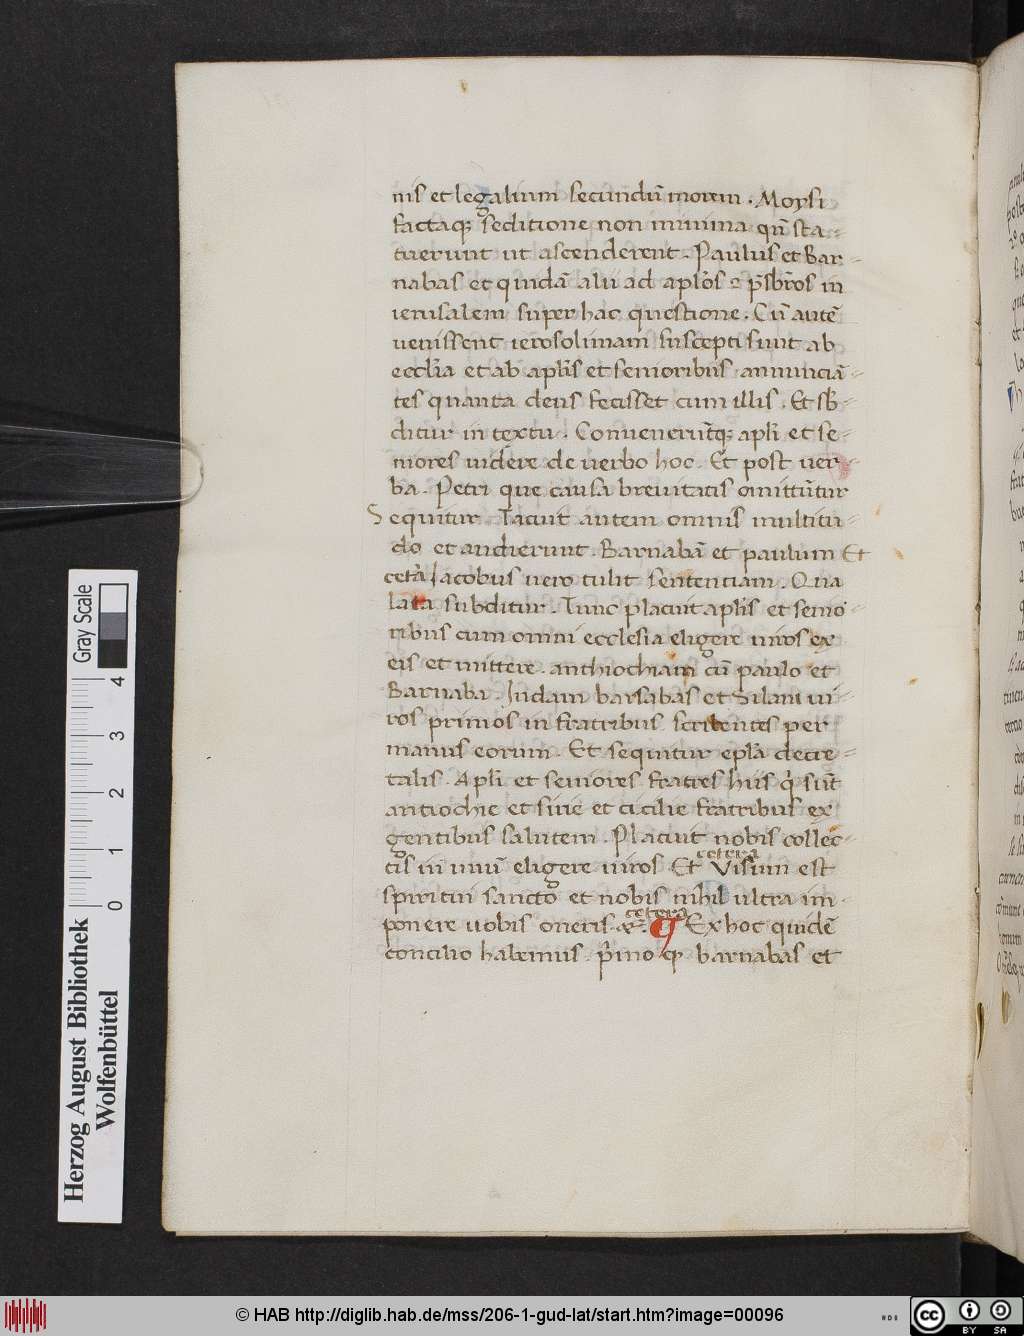 nis et legalium secundū morem . Moysi
factaq; seditione non minima qn̄ sta-
tuerunt ut ascenderent . Paulus et Bar-
nabas et quidā alii ad apl'os ⁊ p̄sbr̄os in
ierusalem super hac questione . Cū autē
uenissent ierosolimam suscepti sunt ab
eccl'ia et ab apl'is et senioribus annunciā-
tes quanta deus fecisset cum illis . Et sb̄-
ditur in textu . Conuenerūtq; apl'i et se-
niores uidere de uerbo hoc . Et post uer-
ba . Petri que causa breuitatis omittūtur
Sequitur . Tacuit autem omnis multitu-
do et audierunt . Barnabā et paulum Et
cetā Jacobus uero tulit sentenciam . Qua
lata subditur . Tunc placuit apl'is et senio-
ribus cum omni ecclesia eligere uiros ex
eis et mittere . anthiochiam cū paulo et
Barnaba . Judam barsabas et Silam ui-
ros primos in fratribus scribentes per
manus eorum . Et sequitur epl'a decre-
talis . Apl'i et seniores fratres hiis q' sūt
antiochie et sirie et cicilie fratribus ex
gentibus salutem . Placuit nobis collec-
tis in unū eligere uiros Et cetera Visum est
spiritui sancto et nobis nihil ultra im-
ponere uobis oneris ⁊c̄. cetera ¶ Ex hoc quidē
concilio habemus . p'imo q; barnabas et
Herzog August Bibliothek
Wolfenbüttel
Gray Scale
0 1 2 3 4
© HAB http://diglib.hab.de/mss/206-1-gud-lat/start.htm?image=00096
CC BY SA